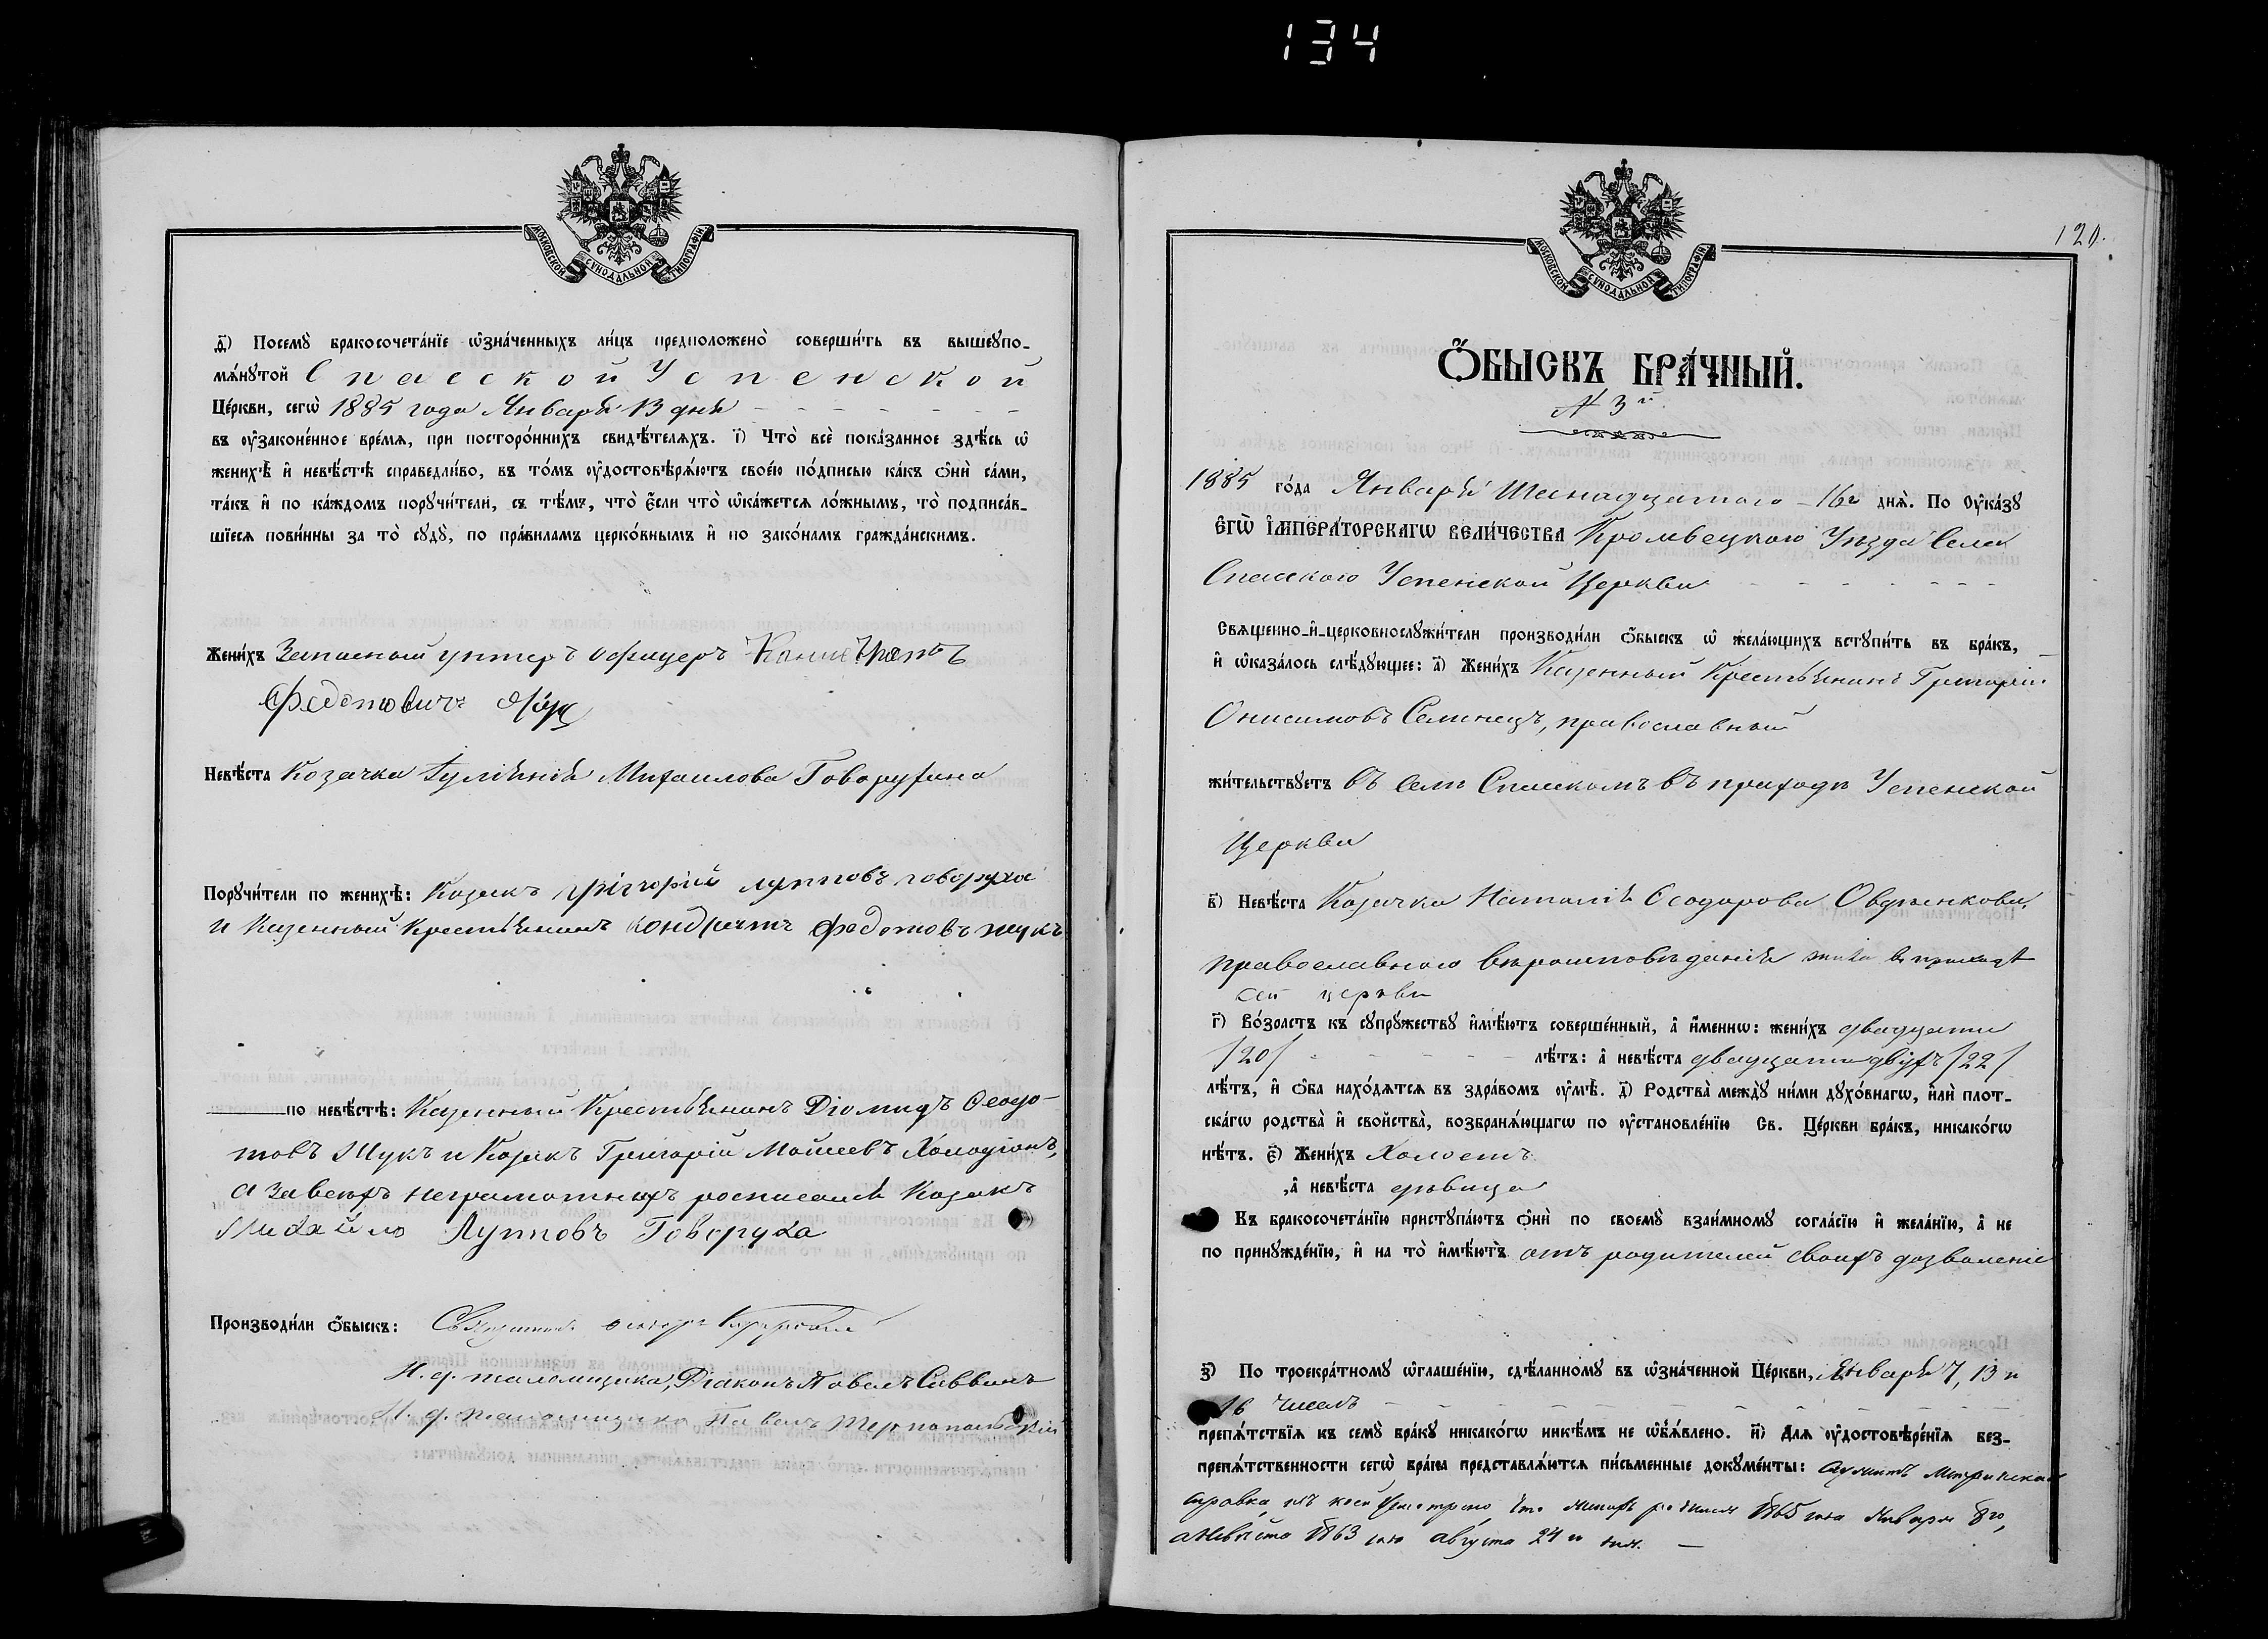 134
МОСКОВСКОЙ СѴНОДАЛЬНОЙ ТИПОГРАФІИ
ѳ҃) Посемꙋ̀ бракосочета́нїе ѡ҆зна́ченныхъ ли́цъ предположено̀ соверши́ть въ вышеꙋпо-
мѧ́нꙋтой Спасской Успенской
Це́ркви, сегѡ̀ 1885 года Января 13 дня
въ ᲂу҆законе́нное вре́мѧ, при посторо́ннихъ свидѣ́телѧхъ. і҃) Что̀ всѐ пока́занное здѣ́сь ѡ҆
женихѣ̀ и҆ невѣ́стѣ справедли́во, въ то́мъ ᲂу҆достовѣрѧ́ютъ свое́ю по́дписью ка́къ ѻ҆нѝ са́ми,
та́къ и҆ по ка́ждомъ порꙋчи́тели, съ тѣ́мъ, что̀ є҆́сли что̀ ѡ҆ка́жетсѧ ло́жнымъ, то̀ подписа́в-
шїесѧ пови́нны за то̀ сꙋдꙋ̀, по пра́виламъ церко́внымъ и҆ по зако́намъ гражда́нскимъ.
Жени́хъ Запасный унтеръ офицеръ
Федотовичъ
Невѣ́ста Козачка Гулянія Михаилова Говорухина
Порꙋчи́тели по женихѣ̀: Козакъ Григорій Лупповъ Говоруха
и Казенный Крестьянинъ Кондратъ Федотовъ Жукъ
по невѣ́стѣ: Казенный Крестьянинъ Діомидъ Ѳеодо-
товъ Жукъ и Козакъ Григорій Моѵсеевъ Холодіонъ,
а за всехъ неграмотныхъ росписался Козакъ
Михайло Лупповъ Говоруха
Производи́ли ѻ҆́быскъ: Священникъ
И. д. псаломщика, Діаконъ Павелъ Саввинъ
И. д. псаломщика Павелъ Тернопольскій
МОСКОВСКОЙ СѴНОДАЛЬНОЙ ТИПОГРАФІИ
120.
Ѻ҆́БЫСКЪ БРА́ЧНЫЙ.
№ 3й
1885 го́да Января Шеснадцатого 16го днѧ̀. По ᲂу҆ка́зꙋ
Є҆ГѠ̀ І҆МПЕРА́ТОРСКАГѠ ВЕЛИ́ЧЕСТВА Кролевецкого Уезда Села
Спасского Успенской Церкви
Свѧщенно-и҆-церковнослꙋжи́тели производи́ли ѻ҆́быскъ ѡ҆ жела́ющихъ встꙋпи́ть въ бра́къ,
и҆ ѡ҆каза́лось слѣ́дꙋющее: а҃) Жени́хъ Казенный Крестьянинъ Григорій
Онисимовъ Семинецъ, православный
жи́тельствꙋетъ въ селе Спасскомъ въ приходе Успенской
Церкви
в҃) Невѣ́ста Козачка Наталія Ѳеодорова Овдѣенкова,
православного вероисповѣданія жила въ приходѣ
сей церкви
г҃) Во́зрастъ къ сꙋпрꙋ́жествꙋ и҆мѣ́ютъ соверше́нный, а҆ и҆́меннѡ: жени́хъ двадцати
/20/ лѣ́тъ: а҆ невѣ́ста двадцати двухъ /22/
лѣ́тъ, и҆ ѻ҆́ба нахо́дѧтсѧ въ здра́вомъ ᲂу҆мѣ̀. д҃) Родства̀ междꙋ̀ ни́ми дꙋхо́внагѡ, и҆лѝ плот-
ска́гѡ родства̀ и҆ сво́йства̀, возбранѧ́ющагѡ по ᲂу҆становле́нїю Св. Це́ркви бра́къ, никако́гѡ
нѣ́тъ. є҃) Жени́хъ Холостъ
, а҆ невѣ́ста девица
Къ бракосочета́нїю пристꙋпа́ютъ ѻ҆нѝ по своемꙋ̀ взаи́мномꙋ согла́сїю и҆ жела́нїю, а҆ не
по принꙋжде́нїю, и҆ на то̀ и҆мѣ́ютъ отъ родителей своихъ дозволеніе
з҃) По троекра́тномꙋ ѡ҆глаше́нїю, сдѣ́ланномꙋ въ ѡ҆зна́ченной Це́ркви, Января 7, 13 и
16 числъ
препѧ́тствїѧ къ семꙋ̀ бра́кꙋ никако́гѡ никѣ́мъ не ѡ҆б̾ѧ́влено. и҃) Длѧ ᲂу҆достовѣре́нїѧ без-
препѧ́тственности сегѡ̀ бра́ка представлѧ́ютсѧ пи́сьменные докꙋме́нты: служитъ Метрическая
справка, изъ коей усмотрено, что женихъ родился 1865 года Января 8го,
а невѣста 1863 года августа 24го дня.